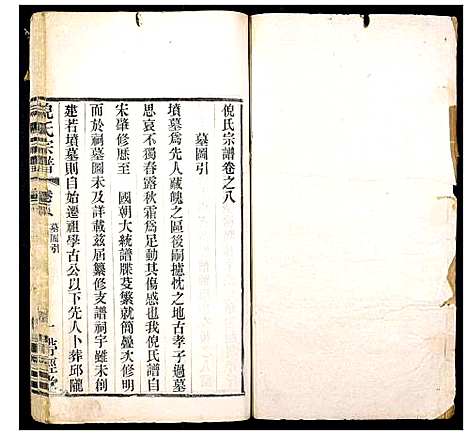 倪氏宗譜卷之八
墓圖引
墳墓爲先人藏魄之區後嗣攄忱之地古孝子過墓
思哀不獨春露秋霜爲足動其傷感也我倪氏譜自
宋肇修厯至 國朝大統譜牒芟繁就簡疊次修明
而於祠墓圖未及詳載茲屆纂修支譜祠宇雖未創
建若墳墓則自始遷祖學古公以下先人卜葬邱隴
倪氏宗譜
墓圖引
一